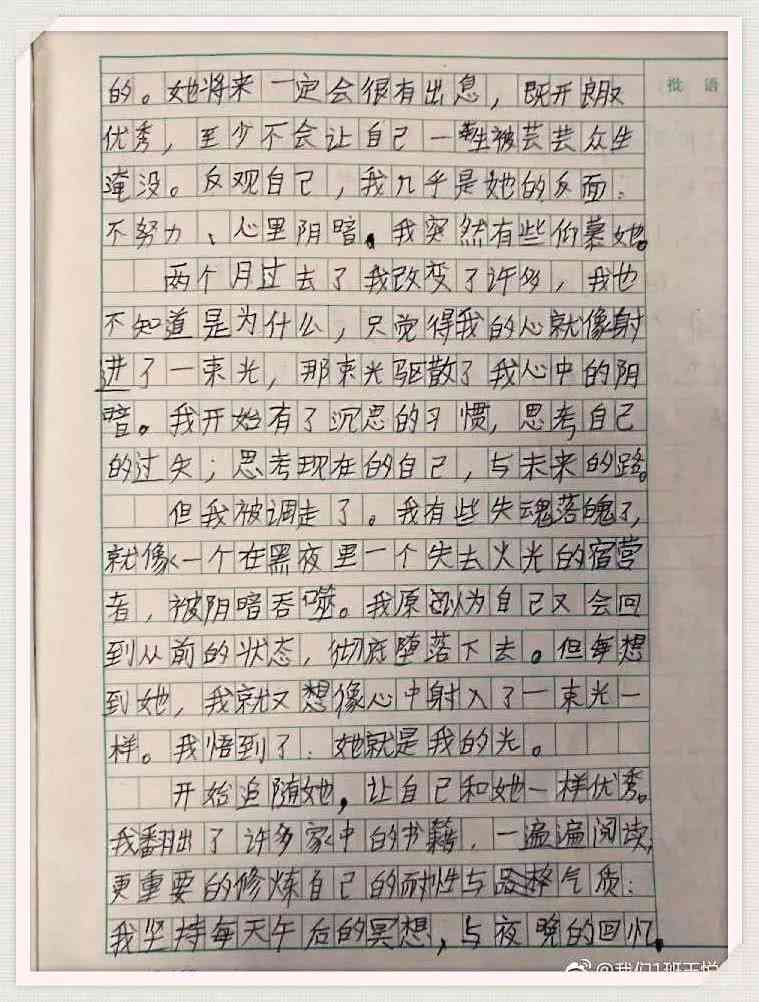 批 语
的。她将来一定会很有出息，既开朗又
优秀，至少不会让自己一生被芸芸众生
淹没。反观自己，我几乎是她的反面：
不努力、心里阴暗。我突然有些仰慕她。
两个月过去了我改变了许多，我也
不知道是为什么，只觉得我的心就像射
进了一束光，那束光驱散了我心中的阴
暗。我开始有了沉思的习惯，思考自己
的过失；思考现在的自己，与未来的路。
但我被调走了。我有些失魂落魄了，
就像一个在黑夜里一个失去火光的宿营
者，被阴暗吞噬。我原以为自己又会回
到从前的状态，彻底堕落下去。但每想
到她，我就又想像心中射入了一束光一
样。我悟到了：她就是我的光。
开始追随她，让自己和她一样优秀。
我翻出了许多家中的书籍，一遍遍阅读，
更重要的修炼自己的耐性与品格气质：
我坚持每天午后的冥想，与夜晚的回忆。
@我们1班王悦